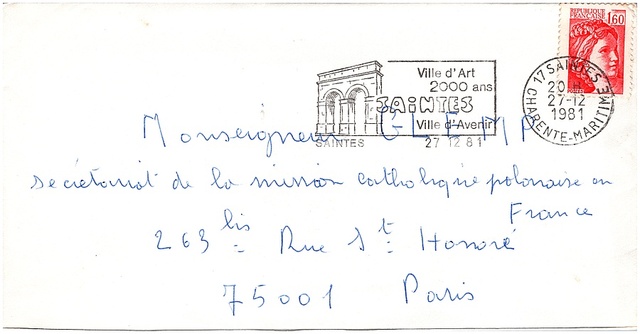 RÉPUBLIQUE FRANÇAISE
1,60
Ville d'Art
2000 ans
SAINTES
Ville d'Avenir
SAINTES
27 12 81
17 SAINTES
27-12
1981
CHARENTE-MARITIME
Monseigneur GLEMP
Secrétariat de la mission catholique polonaise en
France
263 bis Rue St Honoré
75001 Paris